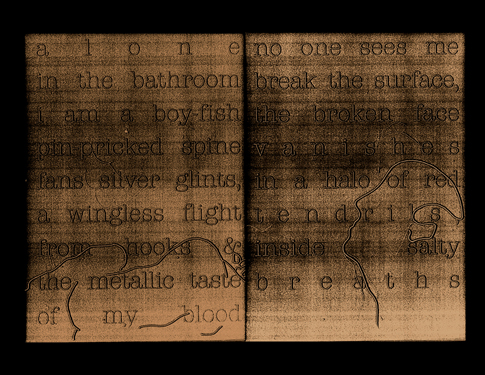 alone
in the bathroom
i am a boy-fish
pin-pricked spine
fans silver glints,
a wingless flight
from hooks &
the metallic taste
of my blood
no one sees me
break the surface,
the broken face
vanishes
in a halo of red
tendrils
inside salty
breaths